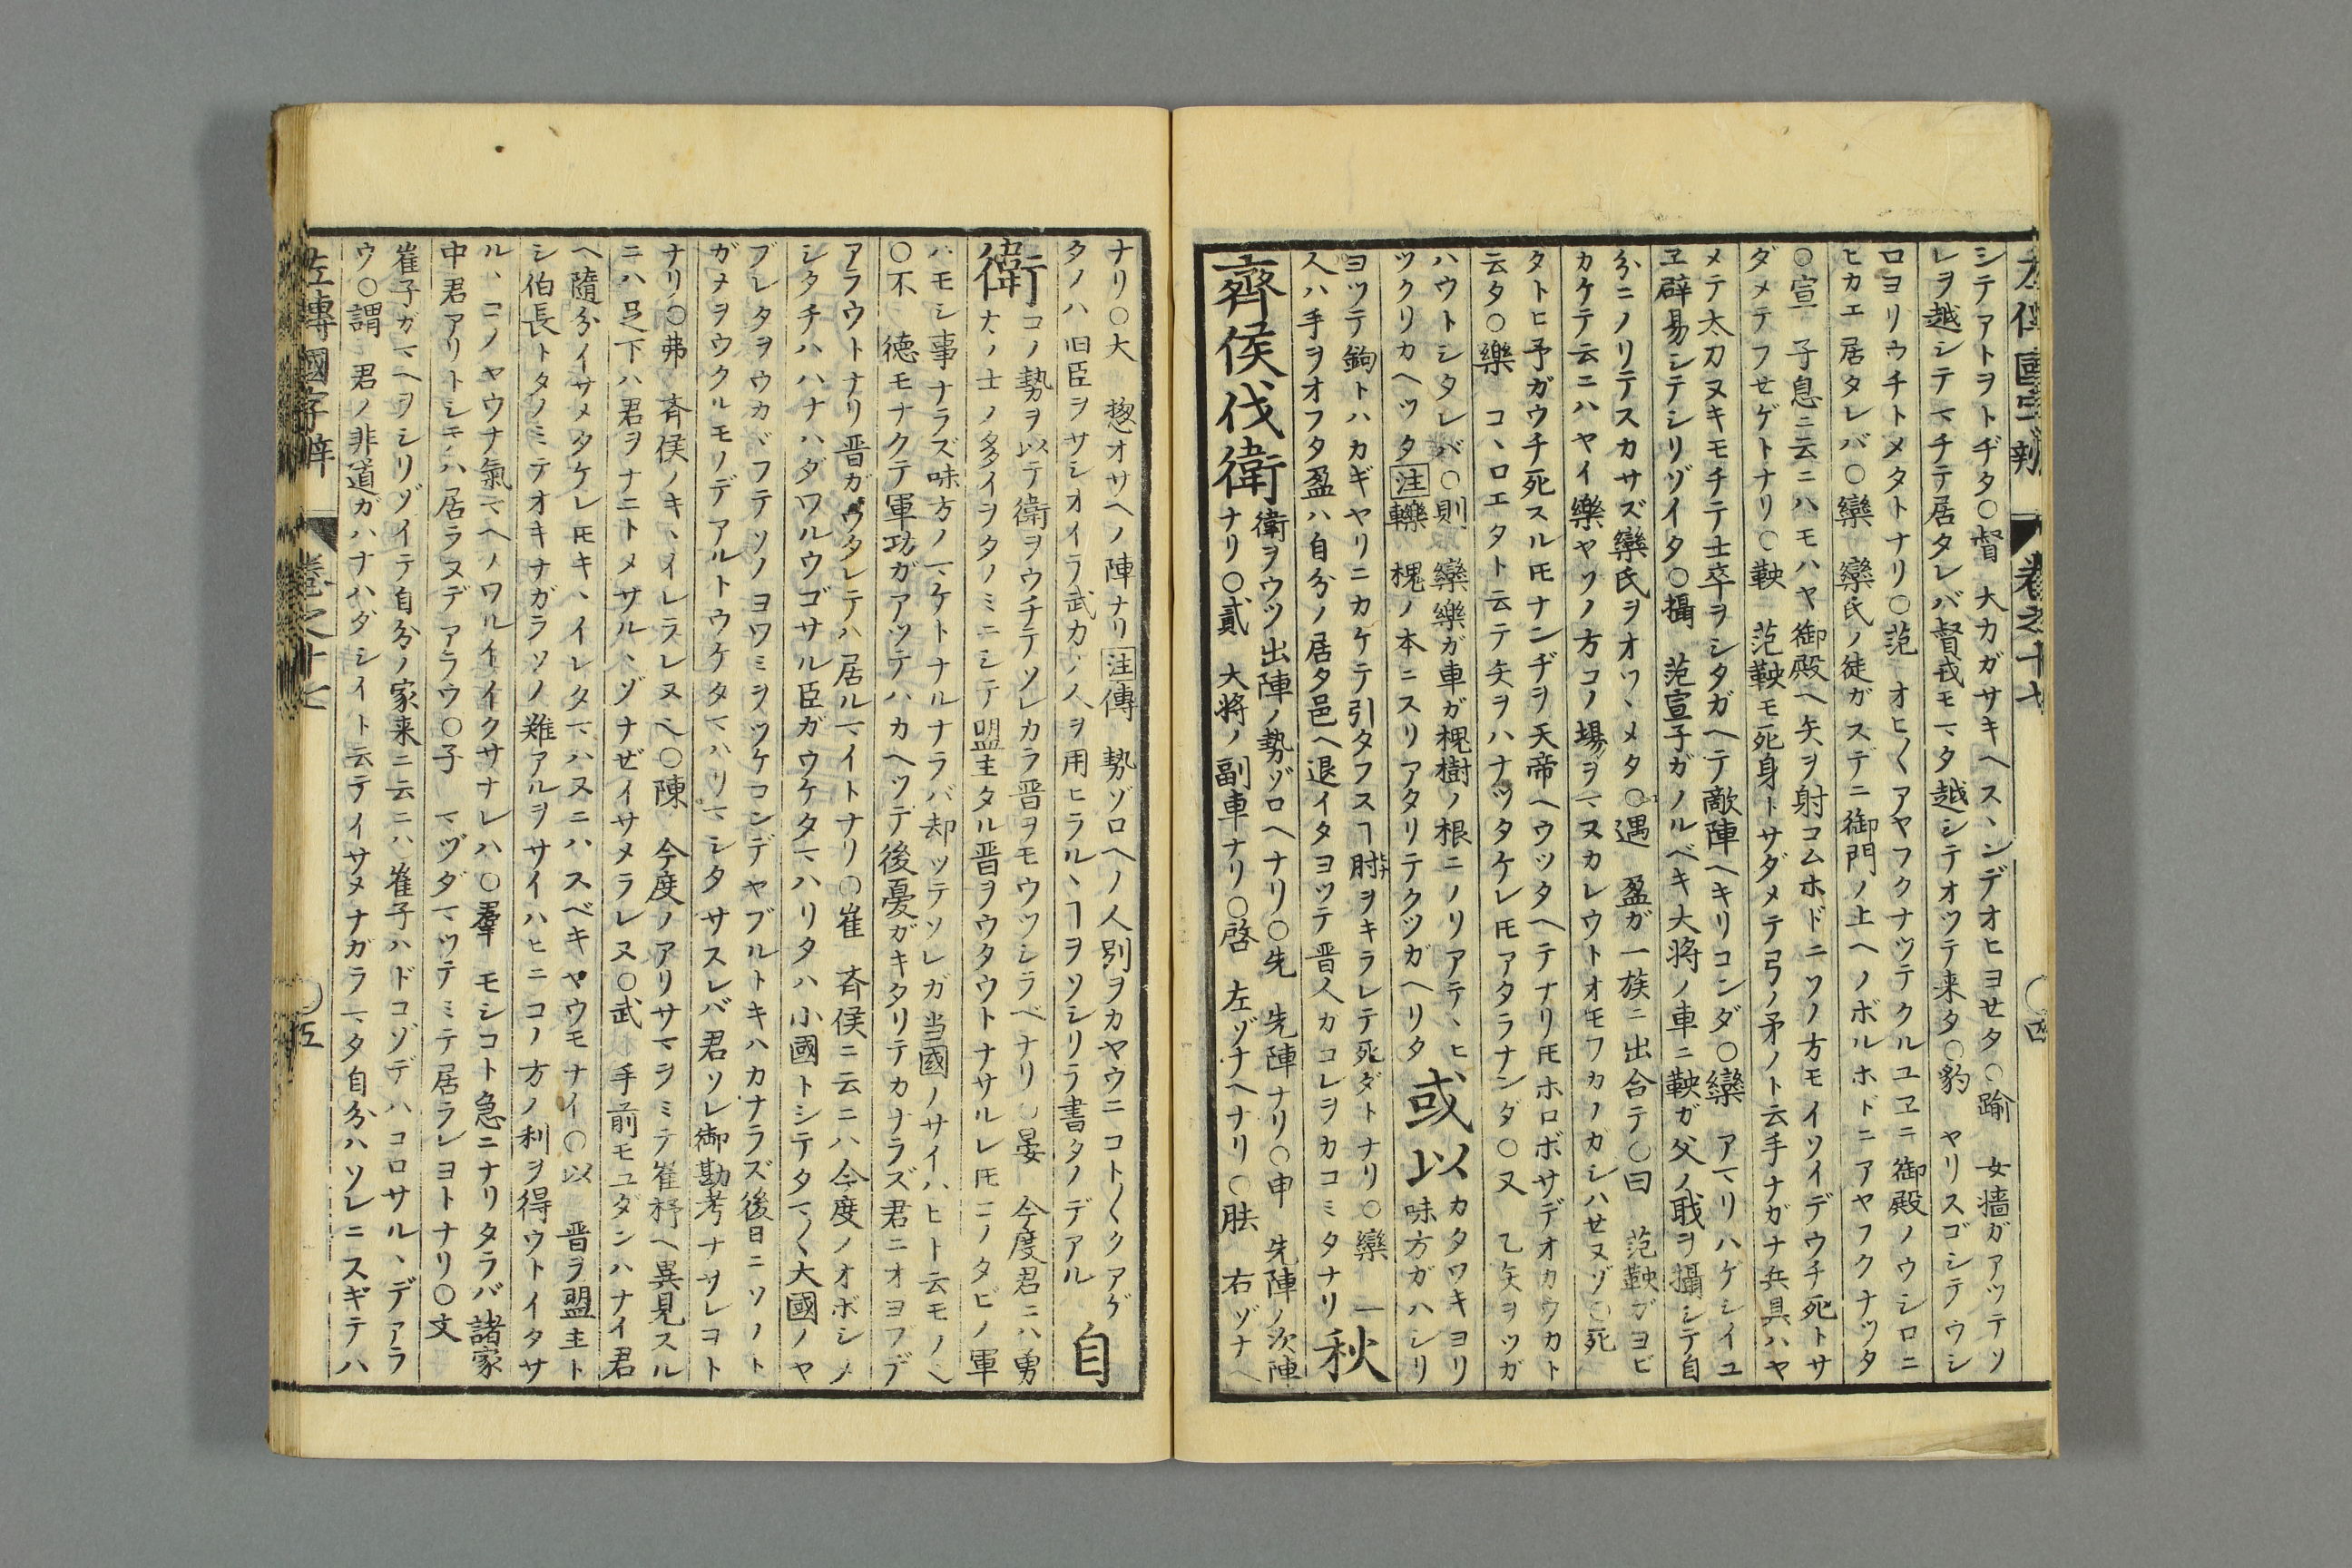 左傳國字辯 卷之十七 ○四
シテアトヲトヂタ○督 大カガサキヘスヽンデオヒヨせタ○踰 女墻ガアツテソ
レヲ越シテマチテ居タレバ督戎モマタ越シテオツテ来タ○豹 ヤリスゴシテウシ
ロヨリウチトメタトナリ○范 オヒ〱アヤフクナツテクルユヱニ御殿ノウシロニ
ヒカエ居タレバ○欒 欒氏ノ徒ガスデニ御門ノ上ヘノボルホドニアヤフクナツタ
○宣 子息ニ云ニハモハヤ御殿ヘ矢ヲ射コムホドニソノ方モイソイデウチ死トサ
ダメテフせゲトナリ○鞅 范鞅モ死身トサダメテ弓ノ矛ノト云手ナガナ兵具ハヤ
メテ太刀ヌキモチテ士卒ヲシタガヘテ敵陣ヘキリコンダ○欒 アマリハゲシイユ
ヱ辟易シテシリゾイタ○攝 范宣子ガノルベキ大将ノ車ニ鞅ガ父ノ戝ヲ攝シテ自
分ニノリテスカサズ欒氏ヲオワヽメタ○遇 盈ガ一族ニ出合テ○曰 范鞅ガヨビ
カケテ云ニハヤイ樂ヤソノ方コノ場ヲマヌカレウトオモフカノガシハせヌゾ○死
タトヒ予ガウチ死スルトモナンヂヲ天帝ヘウツタヘテナリトモホロボサデオカウカト
云タ○樂 コヽロエタト云テ矢ヲハナツタケレトモアタラナンダ○又 乙矢ヲツガ
ハウトシタレバ○則 欒樂ガ車ガ槐樹ノ根ニノリアテヽヒ
ツクリカヘツタ注轢 槐ノ本ニスリアタリテクツガヘリタ 或以 カタワキヨリ
味方ガハシリ
ヨツテ鉤トハカギヤリニカケテ引タフスヿ肘ヲキラレテ死ダトナリ○欒 一
人ハ手ヲオフタ盈ハ自分ノ居タ邑ヘ退イタヨツテ晋人カコレヲカコミタナリ 秋
齊侯伐衛 衛ヲウツ出陣ノ勢ゾロヘナリ○先 先陣ナリ○申 先陣ノ次陣
ナリ○貳 大将ノ副車ナリ○啓 左ゾナヘナリ○胠 右ゾナヘ
ナリ○大 惣オサヘノ陣ナリ注傳 勢ゾロヘノ人別ヲカヤウニコト〱クアゲ
タノハ旧臣ヲサシオイラ武カノ人ヲ用ヒラルヽヿヲソシリラ書タノデアル 自
衛 コノ勢ヲ以テ衛ヲウチテソレカラ晋ヲモウツシラベナリ○晏 今度君ニハ勇
大ノ士ノ多イヲタノミニシテ盟主タル晋ヲウタウトナサルレトモコノタビノ軍
ハモシ事ナラズ味方ノマケトナルナラバ却ツテソレガ当國ノサイハヒト云モノヘ
○不 徳モナクテ軍功ガアツテハカヘツデ後憂ガキタリテカナラズ君ニオヨフデ
アラウトナリ晋ガウタレテハ居ルマイトナリ○崔 斉侯ニ云ニハ今度ノオボシメ
シタチハハナハダワルウゴサル臣ガウケタマハリタハ小國トシテタマ〱大國ノヤ
ブレタヲウカヾフテソノヨワミヲツケコンデヤブルトキハカナラズ後日ニソノト
ガメヲウクルモノデアルトウケタマハリマシタサスレバ君ソレ御勘考ナサレコト
ナリ○弗 斉侯ノキヽイレラレヌヘ○陳 今度ノアリサマヲミテ崔杼ヘ異見スル
ニハ足下ハ君ヲナニトメサルヽゾナぜイサメラレヌ○武 手前モユダンハナイ君
ヘ隨分イサメタケレトモキヽイレタマハヌニハスベキヤウモナイ○以 晋ラ盟主ト
シ伯長トタノミテオキナガラソノ難アルヲサイハヒニコノ方ノ利ヲ得ウトイタサ
ルヽコノヤウナ氣マヘノワルイイクサナレハ○羣 モシコト急ニナリタラバ諸家
中君アリトシモハ居ラヌデアラウ○子 マヅダマツテミテ居ラレヨトナリ○文
崔子ガマヘヲシリゾイテ自分ノ家来ニ云ニハ崔子ハドコゾデハコロサルヽデアラ
ウ○謂 君ノ非道ガハナハダシイト云テイサメナガラマタ自分ハソレニスギテハ
左傳國字辯 卷之十七 ○五